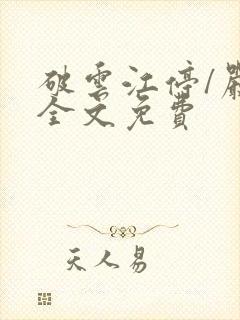 破雲江停/嚴
全文免費
天人易